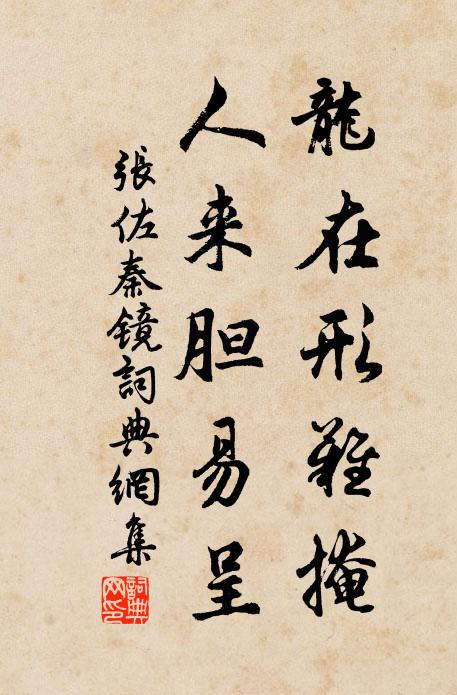 龍在形難掩
人来胆易呈
張佐秦鏡詞典網集
詞典
网印